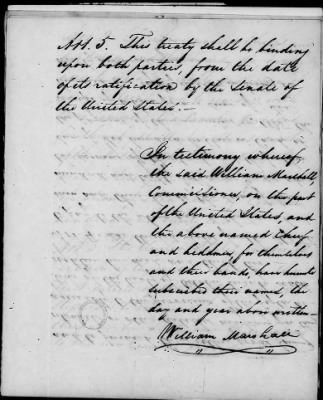 Art. 5. This treaty shall be binding
upon both parties, from the date
of its ratification by the Senate of
the United States.—
In testimony whereof,
the said William Marshall,
Commissioner, on the part
of the United States, and
the above named Chief
and headmen, for themselves
and their bands, have hereunto
subscribed their names, the
day and year above written—
William Marshall